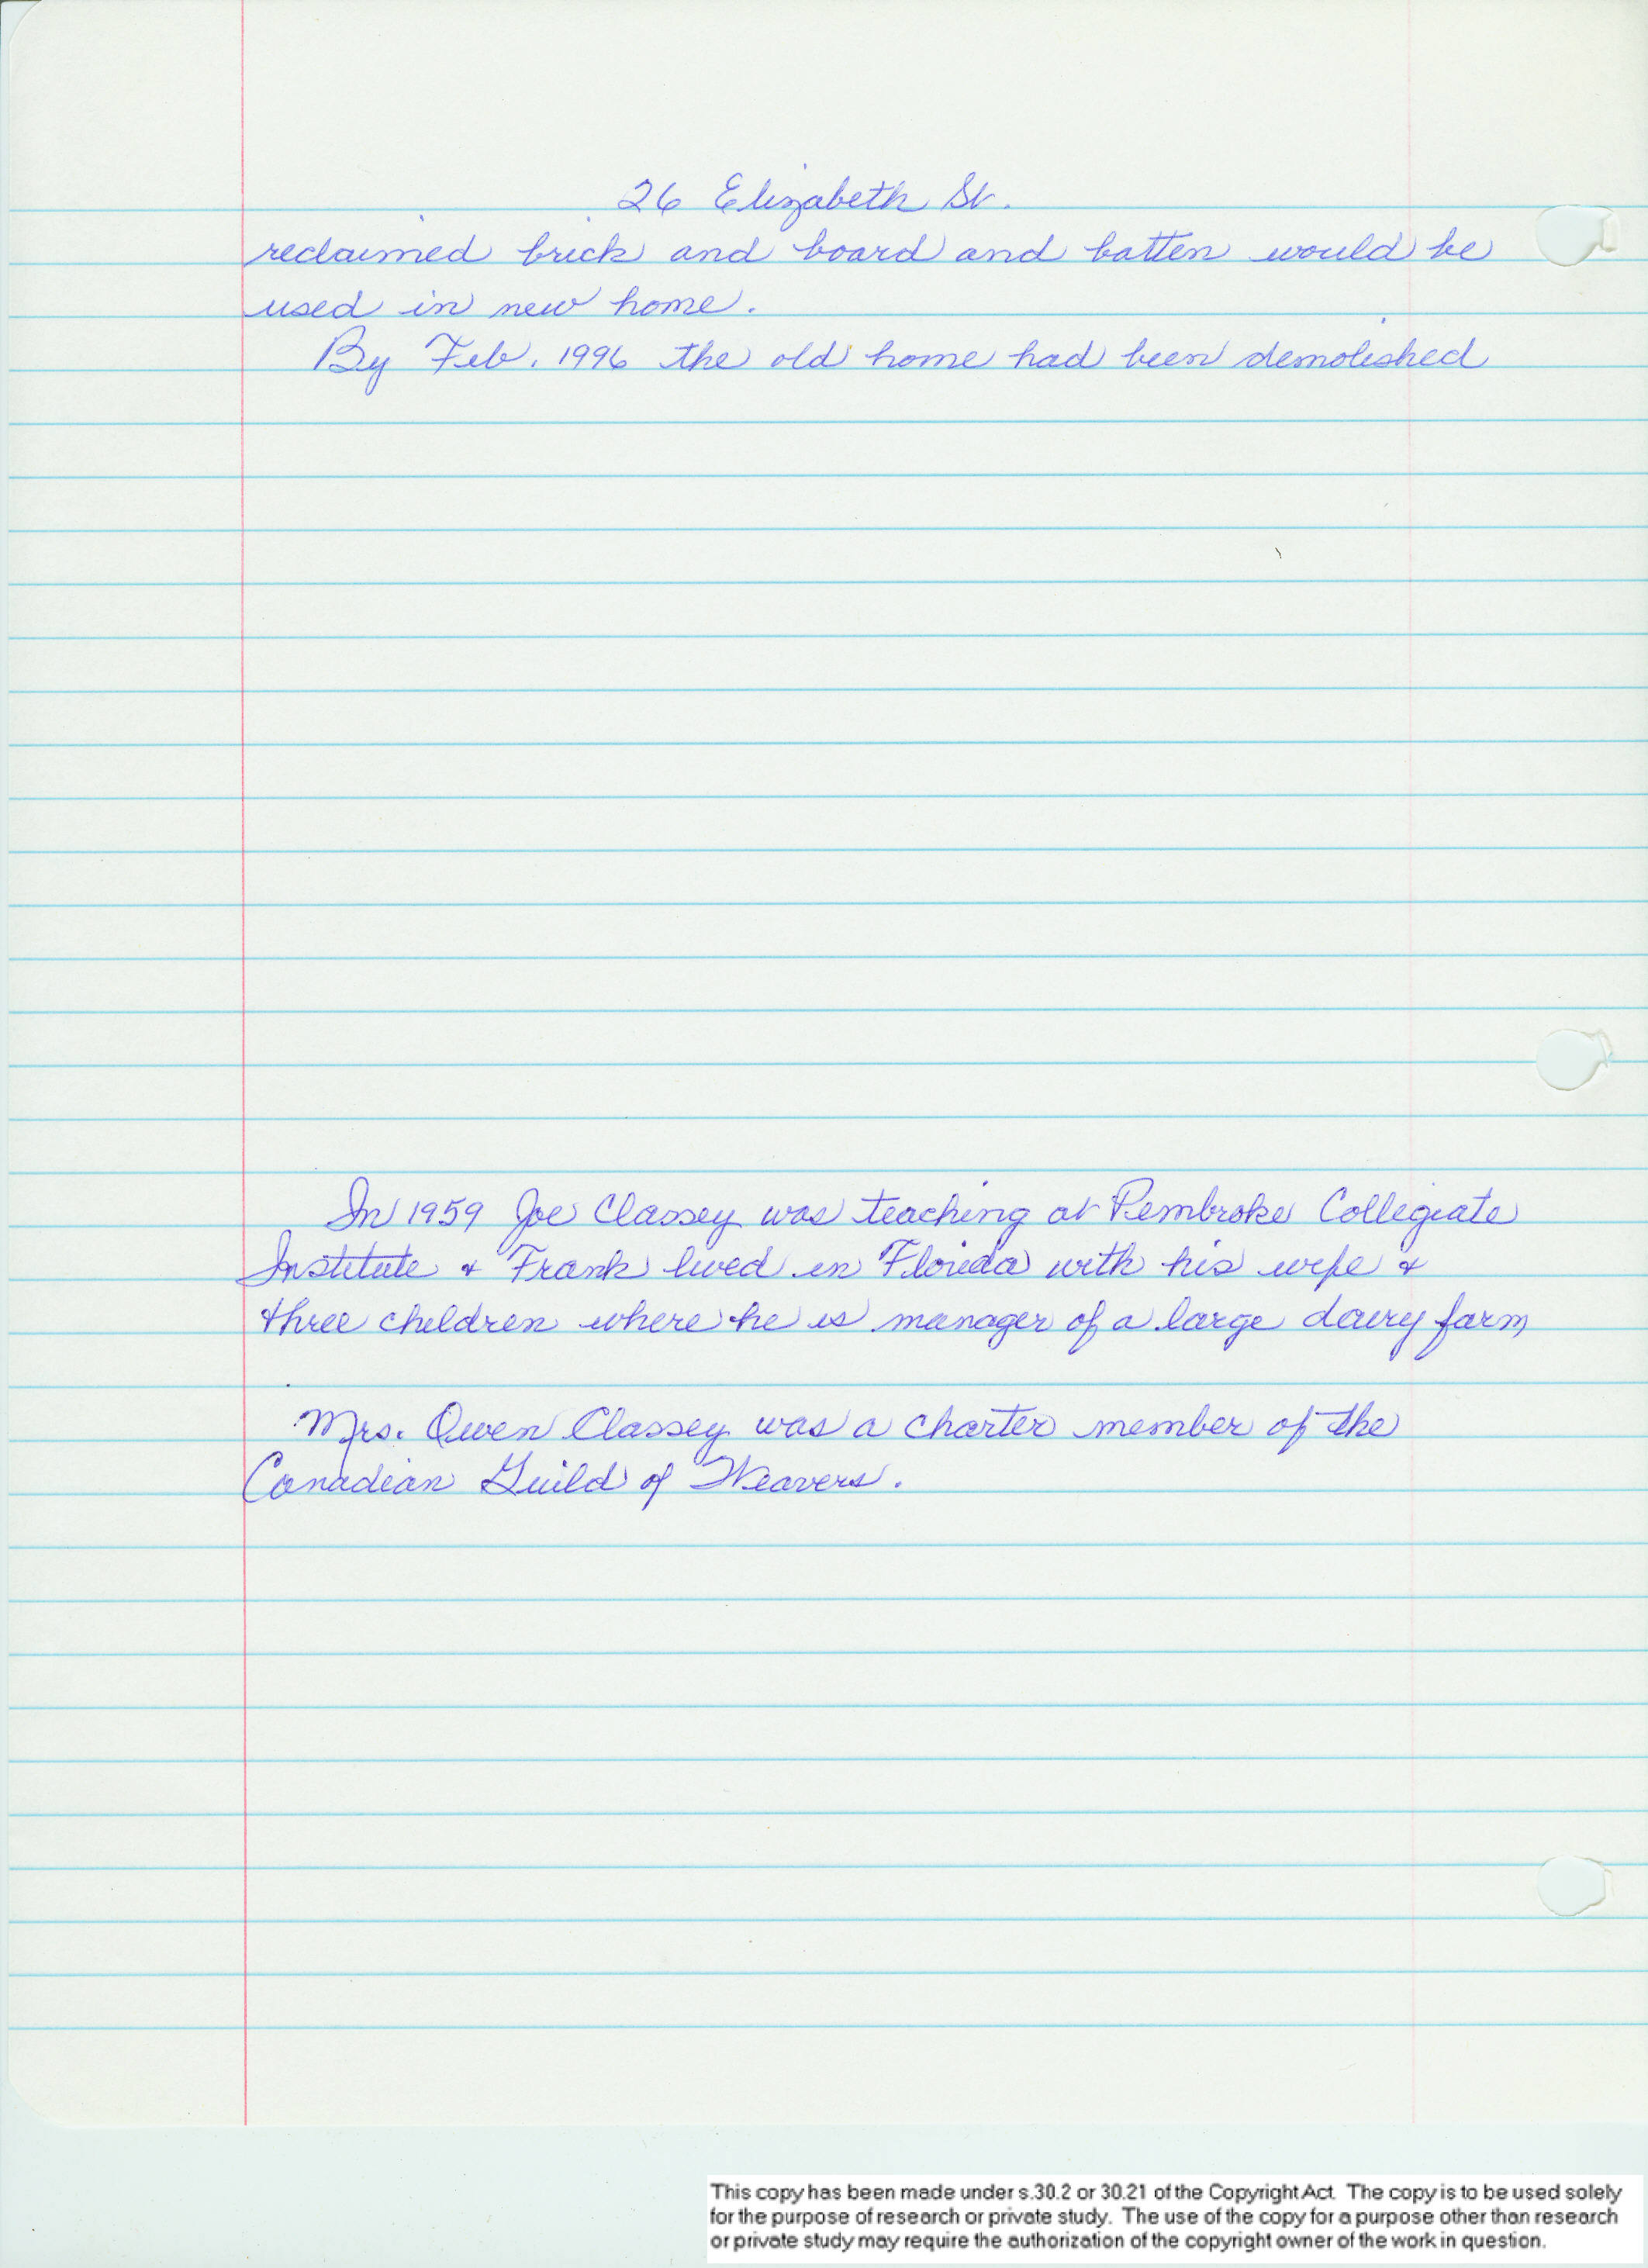 26 Elizabeth St.
reclaimed brick and board and batten would be
used in new home.
By Feb. 1996 the old home had been demolished
In 1959 Joe Classey was teaching at Pembroke Collegiate
Institute & Frank lived in Florida with his wife &
three children where he is manager of a large dairy farm
Mrs. Owen Classey was a charter member of the
Canadian Guild of Weavers.
This copy has been made under s.30.2 or 30.21 of the Copyright Act. The copy is to be used solely
for the purpose of research or private study. The use of the copy for a purpose other than research
or private study may require the authorization of the copyright owner of the work in question.